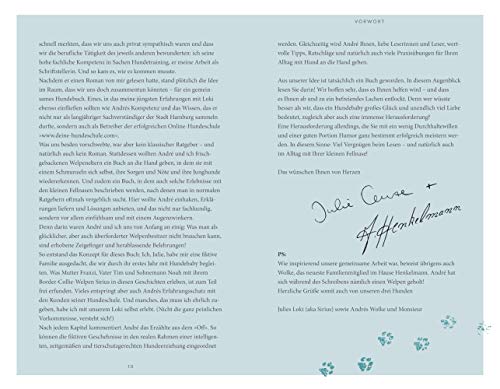 schnell merkten, dass wir uns auch privat sympathisch waren und dass
wir die berufliche Tätigkeit des jeweils anderen bewunderten: ich seine
hohe fachliche Kompetenz in Sachen Hundetraining, er meine Arbeit als
Schriftstellerin. Und so kam es, wie es kommen musste.
Nachdem er einen Roman von mir gelesen hatte, stand plötzlich die Idee
im Raum, dass wir uns doch zusammentun könnten – für ein gemein-
sames Hundebuch. Eines, in das meine jüngsten Erfahrungen mit Loki
ebenso einfließen sollten wie Andrés Kompetenz und das Wissen, das er
nicht nur als langjähriger Sachverständiger der Stadt Hamburg sammeln
durfte, sondern auch als Betreiber der erfolgreichen Online-Hundeschule
»www.deine-hundeschule.com«.
Was uns beiden vorschwebte, war aber kein klassischer Ratgeber – und
natürlich auch kein Roman. Stattdessen wollten André und ich frisch-
gebackenen Welpeneltern ein Buch an die Hand geben, in dem sie mit
einem Schmunzeln sich selbst, ihre Sorgen und Nöte und ihre Junghunde
wiedererkennen. Und zudem ein Buch, in dem auch solche Erlebnisse mit
den kleinen Fellnasen beschrieben werden, nach denen man in normalen
Ratgebern oftmals vergeblich sucht. Hier wollte André einhaken, Erklä-
rungen liefern und Lösungen anbieten, und das nicht nur fachkundig,
sondern vor allem einfühlsam und mit einem Augenzwinkern.
Denn darin waren André und ich uns von Anfang an einig: Was man als
glücklicher, aber auch überforderter Welpenbesitzer nicht brauchen kann,
sind erhobene Zeigefinger und herablassende Belehrungen!
So entstand das Konzept für dieses Buch: Ich, Julie, habe mir eine fiktive
Familie ausgedacht, die wir durch ihr erstes Jahr mit Hundebaby beglei-
ten. Was Mutter Franzi, Vater Tim und Sohnemann Noah mit ihrem
Border-Collie-Welpen Sirius in diesen Geschichten erleben, ist zum Teil
frei erfunden. Vieles entspringt aber auch Andrés Erfahrungsschatz mit
den Kunden seiner Hundeschule. Und manches, das muss ich ehrlich zu-
geben, habe ich mit unserem Loki selbst erlebt. (Nicht die ganz peinlichen
Vorkommnisse, versteht sich!)
Nach jedem Kapitel kommentiert André das Erzählte aus dem »Off«. So
können die fiktiven Geschehnisse in den realen Rahmen einer intelligen-
ten, zeitgemäßen und tierschutzgerechten Hundeerziehung eingeordnet
VORWORT
werden. Gleichzeitig wird André Ihnen, liebe Leserinnen und Leser, wert-
volle Tipps, Ratschläge und natürlich auch viele Praxisübungen für Ihren
Alltag mit Hund an die Hand geben.
Aus unserer Idee ist tatsächlich ein Buch geworden. In diesem Augenblick
lesen Sie darin! Wir hoffen sehr, dass es Ihnen helfen wird – und dass
es Ihnen ab und zu ein befreiendes Lachen entlockt. Denn wer wüsste
besser als wir, dass ein Hundebaby großes Glück und unendlich viel Liebe
bedeutet, zugleich aber auch eine immense Herausforderung?
Eine Herausforderung allerdings, die Sie mit ein wenig Durchhaltewillen
und einer guten Portion Humor ganz bestimmt erfolgreich meistern wer-
den. In diesem Sinne: Viel Vergnügen beim Lesen – und natürlich auch
im Alltag mit Ihrer kleinen Fellnase!
Das wünschen Ihnen von Herzen
Julie +
A Henkelmann
PS:
Wie inspirierend unsere gemeinsame Arbeit war, beweist übrigens auch
Wolke, das neueste Familienmitglied im Hause Henkelmann. André hat
sich während des Schreibens nämlich einen Welpen geholt!
Herzliche Grüße somit auch von unseren drei Hunden
Julies Loki (aka Sirius) sowie Andrés Wolke und Monsieur